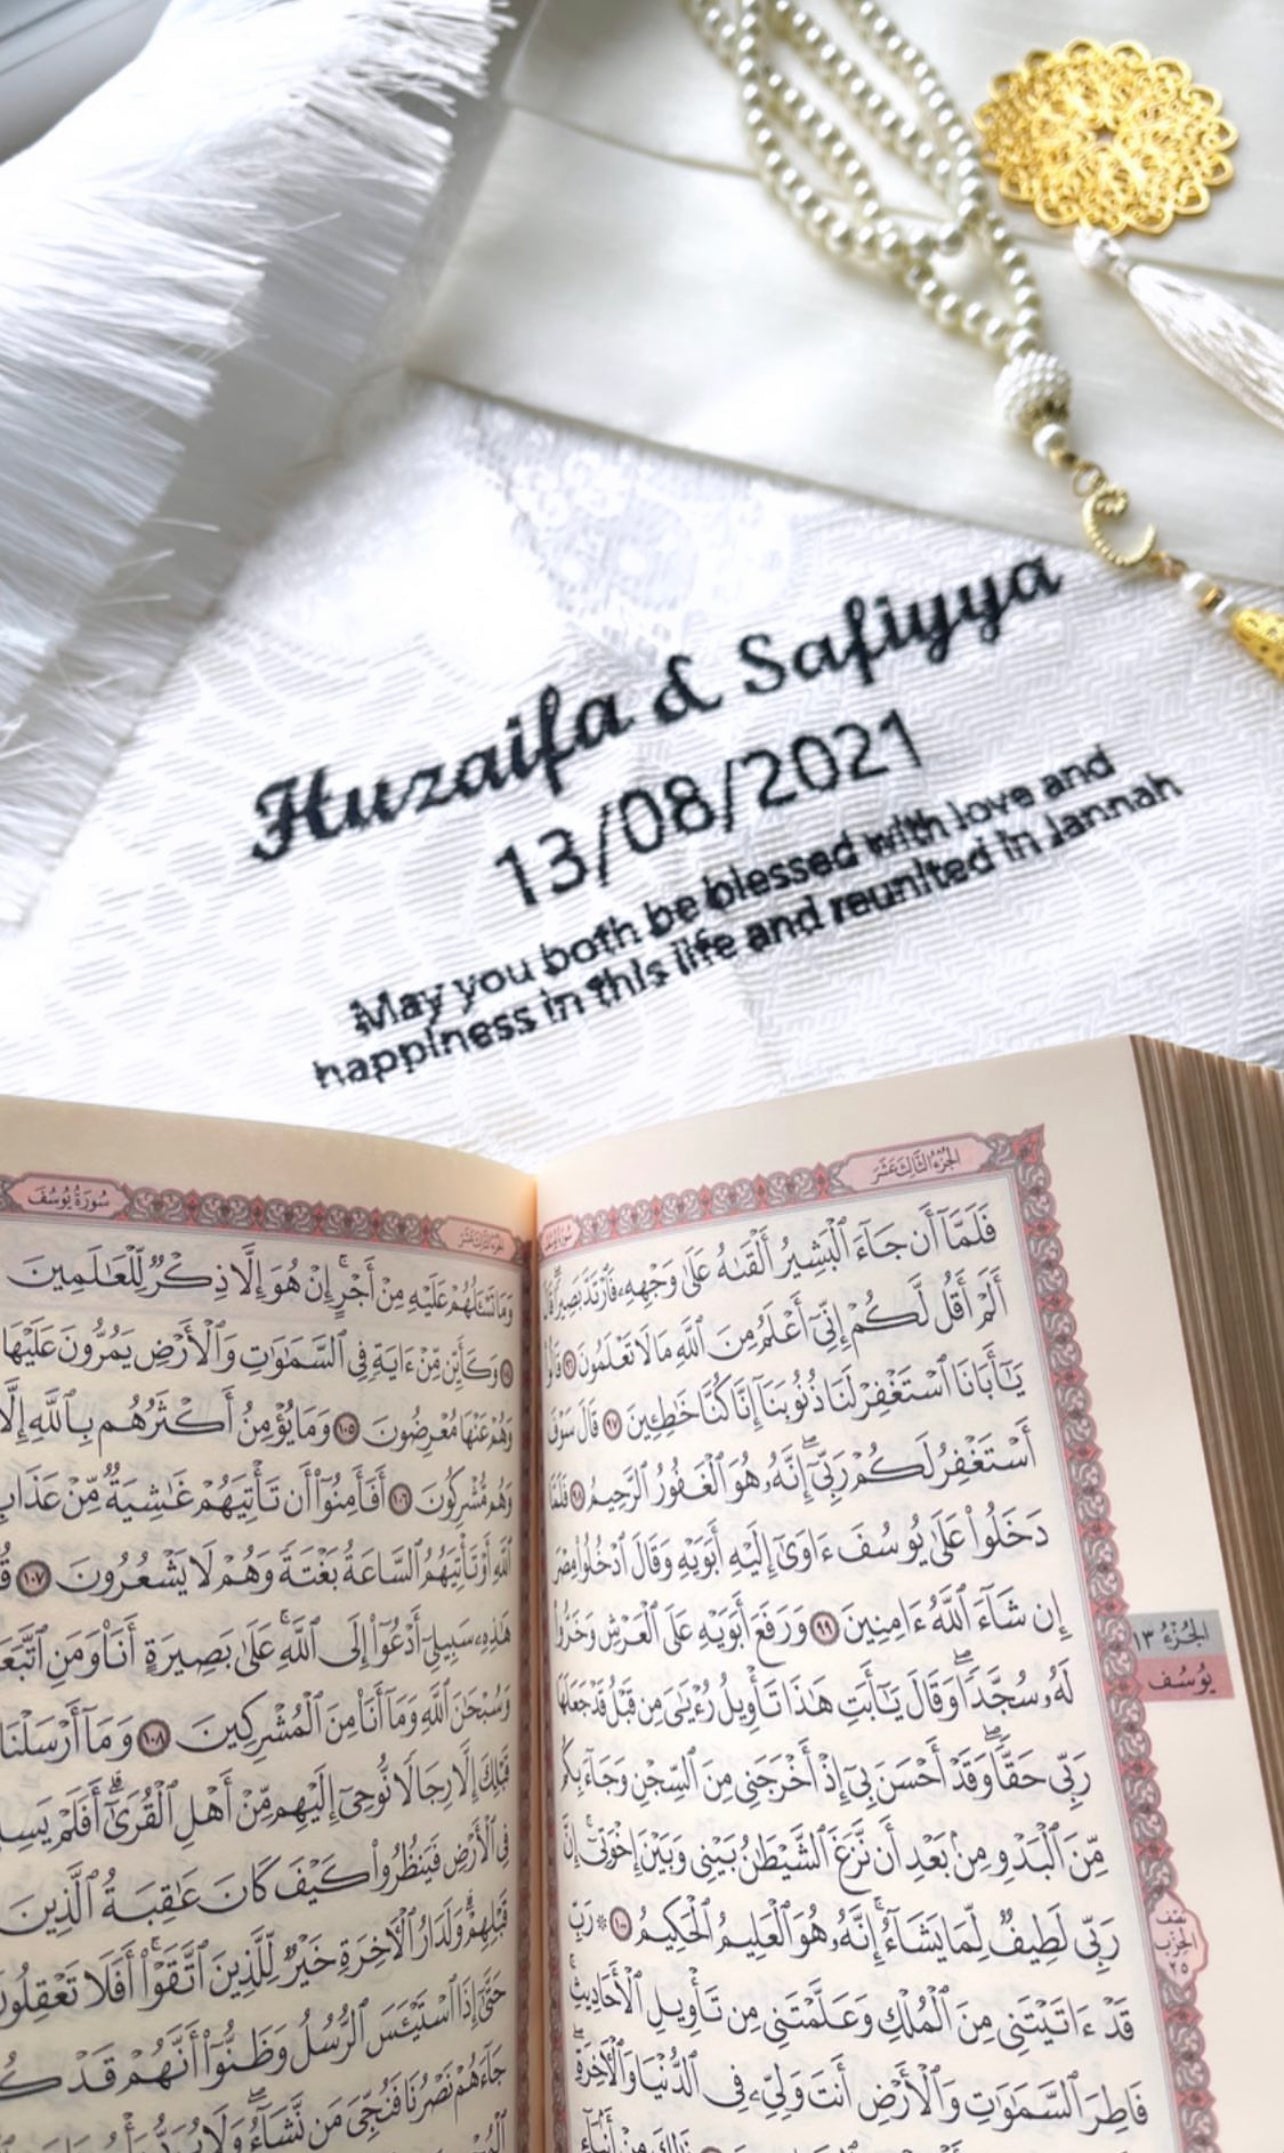 Huzaifa & Safiyya
13/08/2021
May you both be blessed with love and
happiness in this life and reunited in Jannah
الجزء الثالث عشر
فَلَمَّآ أَن جَآءَ ٱلْبَشِيرُ أَلْقَىٰهُ عَلَىٰ وَجْهِهِۦ فَٱرْتَدَّ بَصِيرًا قَالَ
أَلَمْ أَقُل لَّكُمْ إِنِّىٓ أَعْلَمُ مِنَ ٱللَّهِ مَا لَا تَعْلَمُونَ ٩٦ قَالُوا۟
يَـٰٓأَبَانَا ٱسْتَغْفِرْ لَنَا ذُنُوبَنَآ إِنَّا كُنَّا خَـٰطِـِٔينَ ٩٧ قَالَ سَوْفَ
أَسْتَغْفِرُ لَكُمْ رَبِّىٓ إِنَّهُۥ هُوَ ٱلْغَفُورُ ٱلرَّحِيمُ ٩٨ فَلَمَّا
دَخَلُوا۟ عَلَىٰ يُوسُفَ ءَاوَىٰٓ إِلَيْهِ أَبَوَيْهِ وَقَالَ ٱدْخُلُوا۟ مِصْرَ
إِن شَآءَ ٱللَّهُ ءَامِنِينَ ٩٩ وَرَفَعَ أَبَوَيْهِ عَلَى ٱلْعَرْشِ وَخَرُّوا۟
لَهُۥ سُجَّدًا وَقَالَ يَـٰٓأَبَتِ هَـٰذَا تَأْوِيلُ رُءْيَـٰىَ مِن قَبْلُ قَدْ جَعَلَهَا
رَبِّى حَقًّا وَقَدْ أَحْسَنَ بِىٓ إِذْ أَخْرَجَنِى مِنَ ٱلسِّجْنِ وَجَآءَ بِكُم
مِّنَ ٱلْبَدْوِ مِنۢ بَعْدِ أَن نَّزَغَ ٱلشَّيْطَـٰنُ بَيْنِى وَبَيْنَ إِخْوَتِىٓ إِنَّ
رَبِّى لَطِيفٌ لِّمَا يَشَآءُ إِنَّهُۥ هُوَ ٱلْعَلِيمُ ٱلْحَكِيمُ ١٠٠ ۞ رَبِّ
قَدْ ءَاتَيْتَنِى مِنَ ٱلْمُلْكِ وَعَلَّمْتَنِى مِن تَأْوِيلِ ٱلْأَحَادِيثِ
فَاطِرَ ٱلسَّمَـٰوَٰتِ وَٱلْأَرْضِ أَنتَ وَلِىِّۦ فِى ٱلدُّنْيَا وَٱلْـَٔاخِرَةِ
الجزء ١٣
يوسف
نصف
الحزب
٢٥
سورة يوسف
وَمَا تَسْـَٔلُهُمْ عَلَيْهِ مِنْ أَجْرٍ إِنْ هُوَ إِلَّا ذِكْرٌ لِّلْعَـٰلَمِينَ
١٠٤ وَكَأَيِّن مِّنْ ءَايَةٍ فِى ٱلسَّمَـٰوَٰتِ وَٱلْأَرْضِ يَمُرُّونَ عَلَيْهَا
وَهُمْ عَنْهَا مُعْرِضُونَ ١٠٥ وَمَا يُؤْمِنُ أَكْثَرُهُم بِٱللَّهِ إِلَّا
وَهُم مُّشْرِكُونَ ١٠٦ أَفَأَمِنُوٓا۟ أَن تَأْتِيَهُمْ غَـٰشِيَةٌ مِّنْ عَذَابِ
ٱللَّهِ أَوْ تَأْتِيَهُمُ ٱلسَّاعَةُ بَغْتَةً وَهُمْ لَا يَشْعُرُونَ ١٠٧
هَـٰذِهِۦ سَبِيلِىٓ أَدْعُوٓا۟ إِلَى ٱللَّهِ عَلَىٰ بَصِيرَةٍ أَنَا۠ وَمَنِ
وَسُبْحَـٰنَ ٱللَّهِ وَمَآ أَنَا۠ مِنَ ٱلْمُشْرِكِينَ ١٠٨ وَمَآ أَرْسَلْنَا
قَبْلِكَ إِلَّا رِجَالًا نُّوحِىٓ إِلَيْهِم مِّنْ أَهْلِ ٱلْقُرَىٰٓ أَفَلَمْ
فِى ٱلْأَرْضِ فَيَنظُرُوا۟ كَيْفَ كَانَ عَـٰقِبَةُ ٱلَّذِينَ
قَبْلِهِمْ وَلَدَارُ ٱلْـَٔاخِرَةِ خَيْرٌ لِّلَّذِينَ ٱتَّقَوْا۟ أَفَلَا تَعْقِلُونَ
حَتَّىٰٓ إِذَا ٱسْتَيْـَٔسَ ٱلرُّسُلُ وَظَنُّوٓا۟ أَنَّهُمْ قَدْ
جَآءَهُمْ نَصْرُنَا فَنُجِّىَ مَن نَّشَآءُ وَلَا